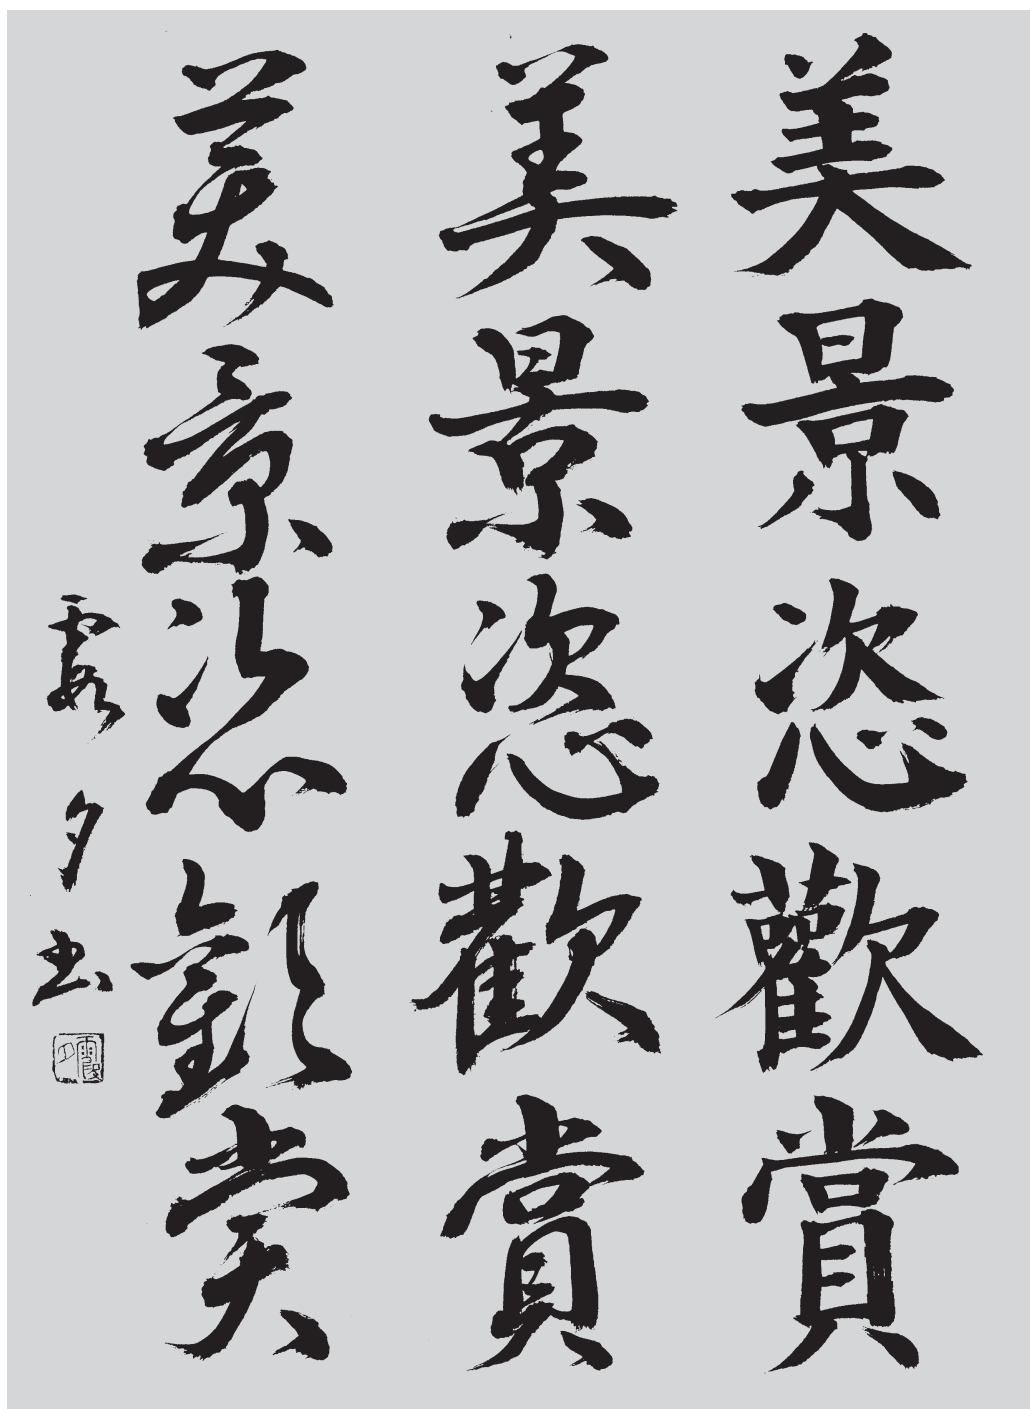 美景恣歡賞
美景恣歡賞
美景恣歡賞
霞夕書
霞夕